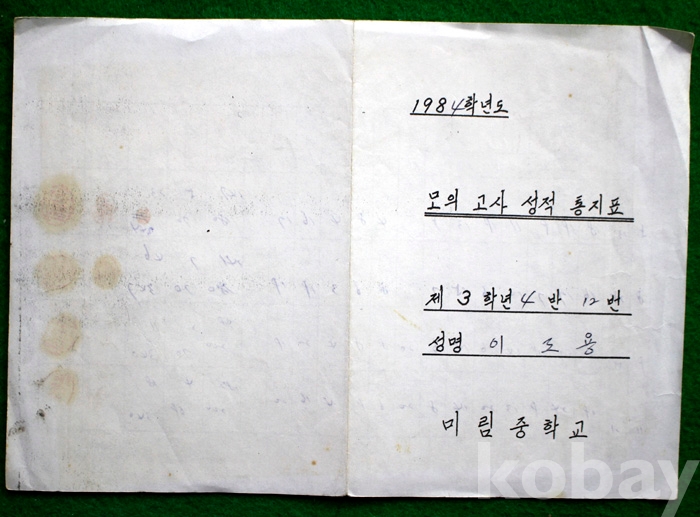 1984학년도
모의 고사 성적 통지표
제 3 학년 4 반 12 번
성명 이 도 용
미 림 중 학 교
kobay